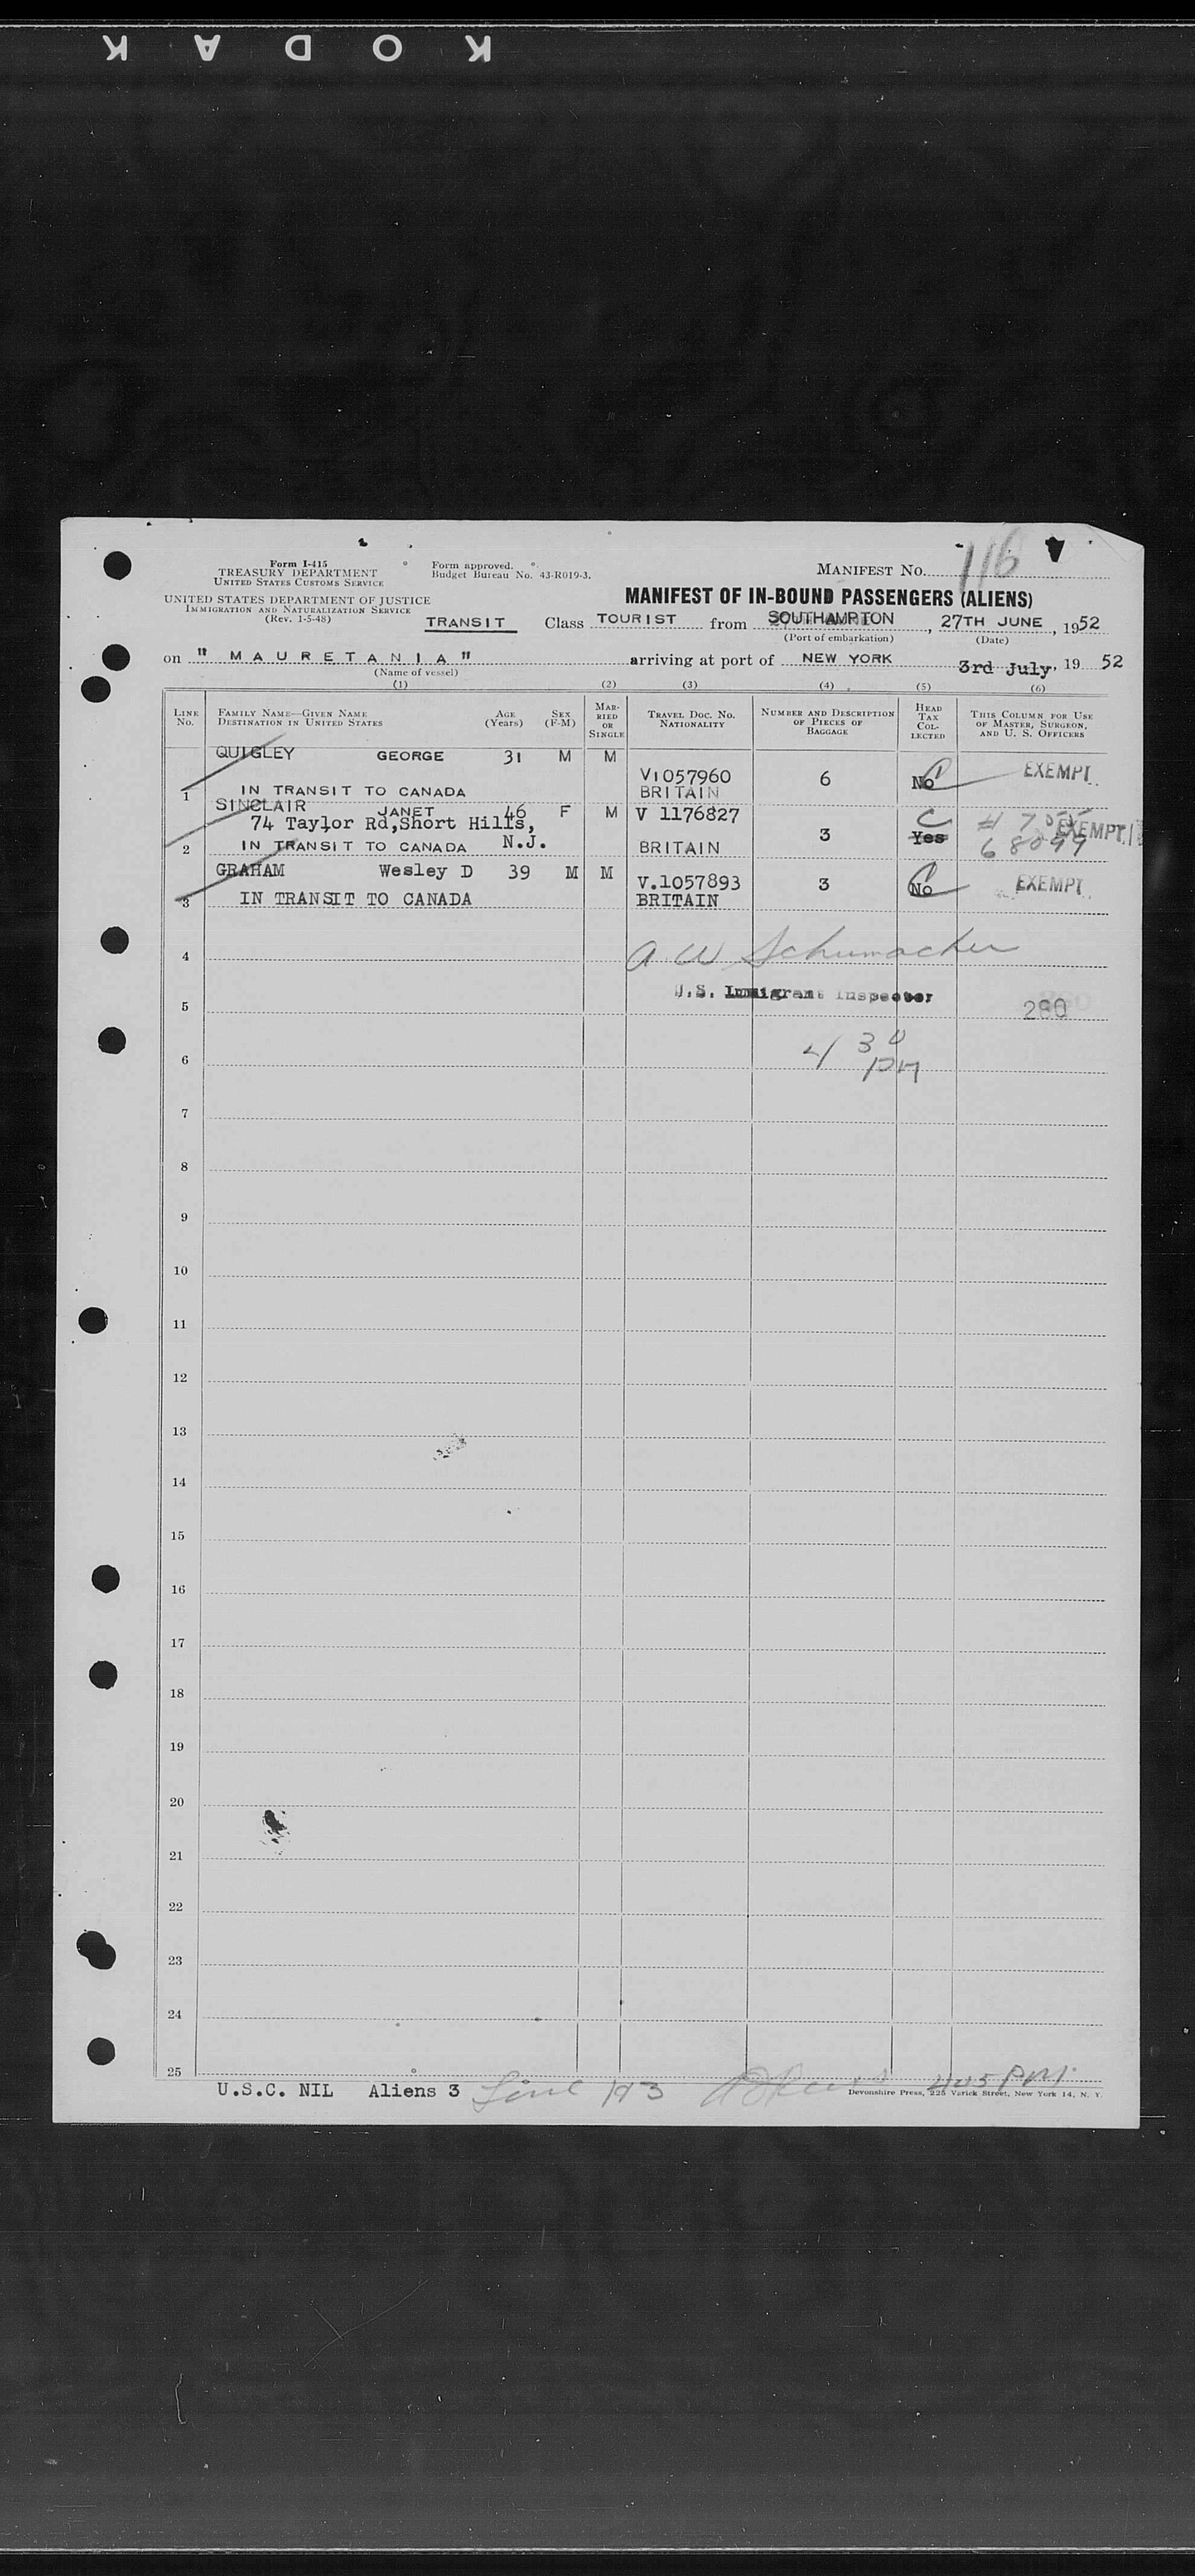 KODAK
116
Form I-415
TREASURY DEPARTMENT
UNITED STATES CUSTOMS SERVICE
Form approved.
Budget Bureau No. 43-R019-3.
MANIFEST NO.
UNITED STATES DEPARTMENT OF JUSTICE
IMMIGRATION AND NATURALIZATION SERVICE
(Rev. 1-5-48)
MANIFEST OF IN-BOUND PASSENGERS (ALIENS)
TRANSIT Class TOURIST from SOUTHAMPTON, 27TH JUNE, 1952
(Port of embarkation) (Date)
on "MAURETANIA" arriving at port of NEW YORK 3rd July, 19 52
(Name of vessel)
(1) (2) (3) (4) (5) (6)
LINE NO. FAMILY NAME—GIVEN NAME DESTINATION IN UNITED STATES AGE (Years) SEX (F-M) MARRIED OR SINGLE TRAVEL DOC. NO. NATIONALITY NUMBER AND DESCRIPTION OF PIECES OF BAGGAGE HEAD TAX COLLECTED THIS COLUMN FOR USE OF MASTER, SURGEON, AND U. S. OFFICERS
QUIGLEY GEORGE 31 M M
V1057960 6 No EXEMPT
1 IN TRANSIT TO CANADA BRITAIN
SINCLAIR JANET 46 F M V 1176827
74 Taylor Rd,Short Hills, 3 Yes EXEMPT
2 IN TRANSIT TO CANADA N.J. BRITAIN 68099
GRAHAM Wesley D 39 M M V.1057893 3 No EXEMPT
3 IN TRANSIT TO CANADA BRITAIN
4 A W Schumacher
5 U.S. Immigrant Inspector 280
6 4 30 PM
7
8
9
10
11
12
13
14
15
16
17
18
19
20
21
22
23
24
25
U.S.C. NIL Aliens 3 Line 193 445 PM
Devonshire Press, 225 Varick Street, New York 14, N. Y.